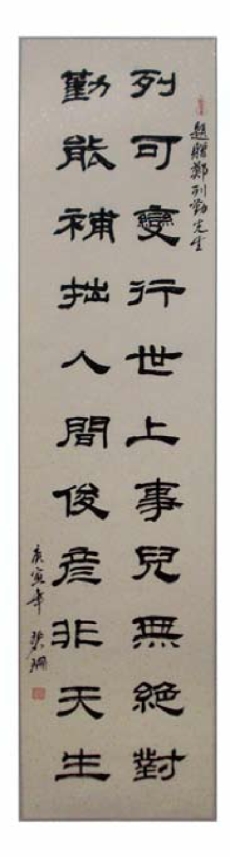 題贈鄭列勤先生
列可變行世上事兒無絕對
勤能補拙人間俊彥非天生
庚寅年